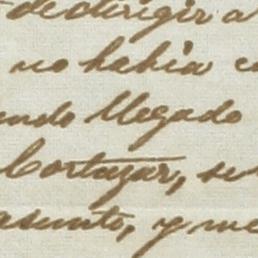 de dirigir a
no habia
endo llegado
Cortazar, se
asunto, y me